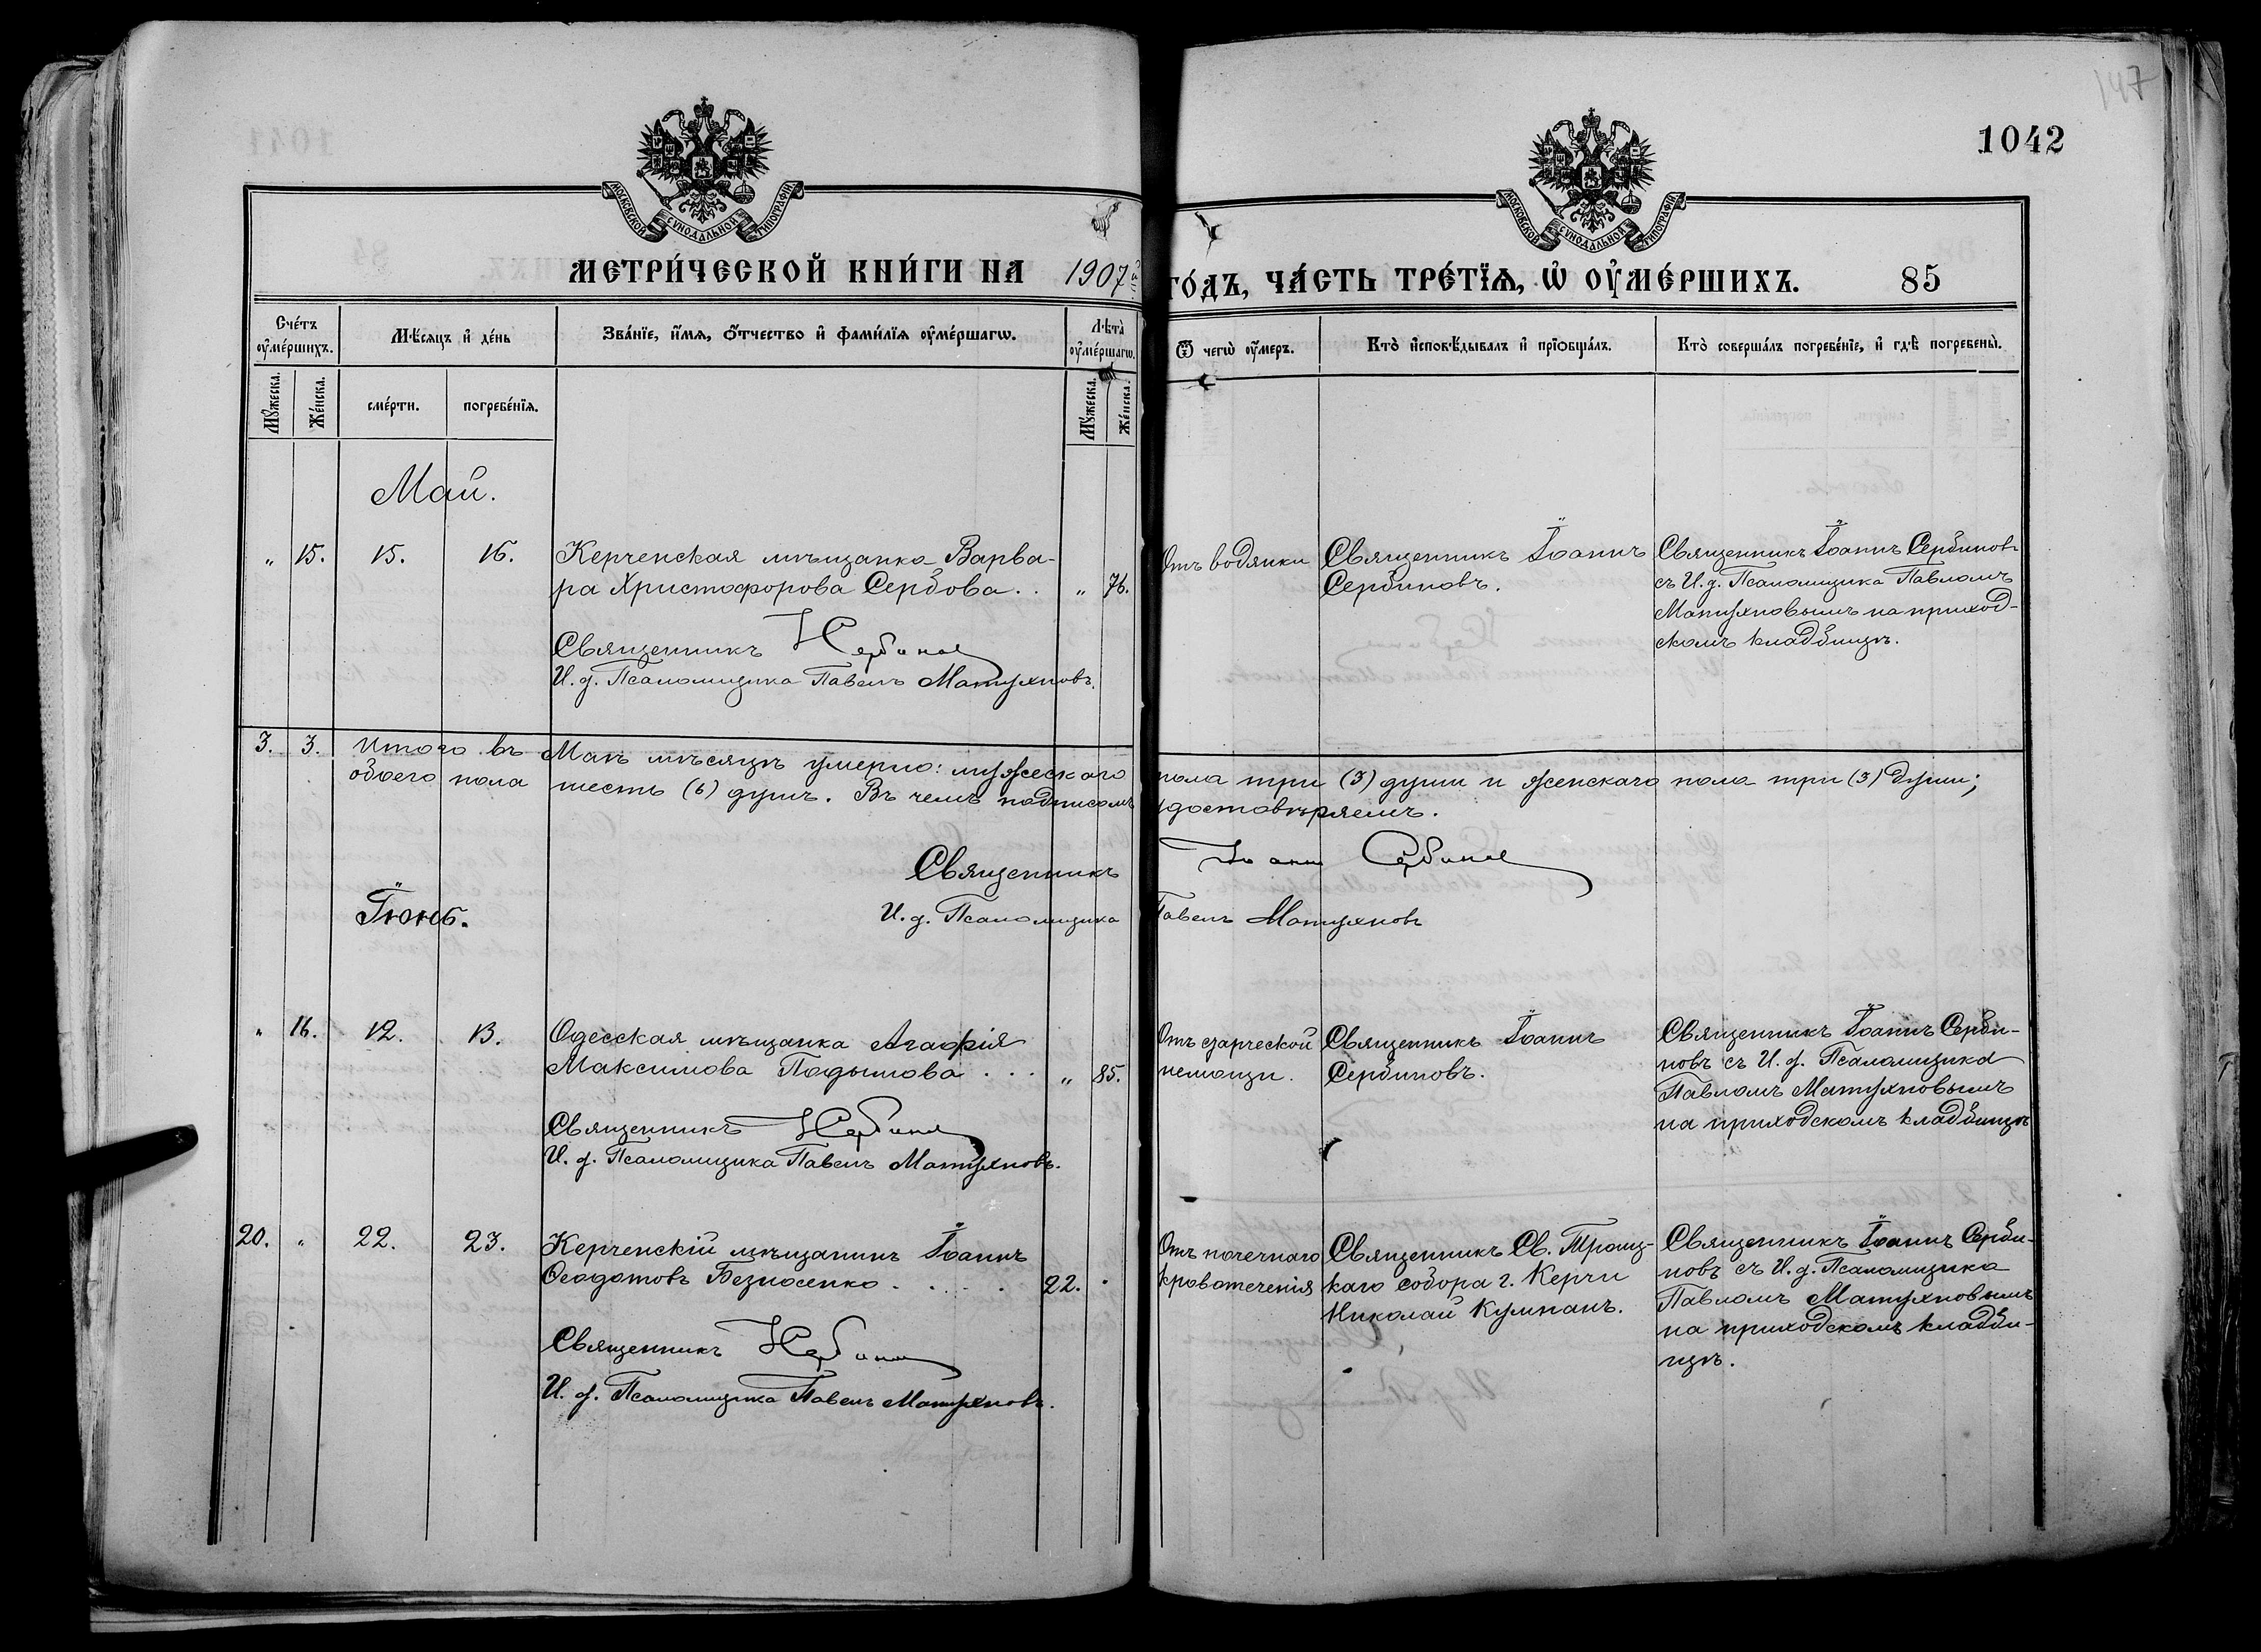 147
1042
МОСКОВСКОЙ СѴНОДАЛЬНОЙ ТИПОГРАФІИ
МОСКОВСКОЙ СѴНОДАЛЬНОЙ ТИПОГРАФІИ
МЕТРИ́ЧЕСКОЙ КНИ́ГИ НА 1907й
ГО́ДЪ, ЧА́СТЬ ТРЕ́ТЇѦ, Ѡ҆ ОУ҆МЕ́РШИХЪ. 85
Сче́тъ оу҆ме́ршихъ.
Мѣ́сяцъ и҆ де́нь
Зва́нїе, и҆́мѧ, ѻ҆́тчество и҆ фами́лїѧ оу҆ме́ршагѡ.
Лѣ́та оу҆ме́ршагѡ.
Ѿ чегѡ̀ оу҆́меръ.
Кто̀ и҆сповѣ́дывалъ и҆ прїѻбща́лъ.
Кто̀ соверша́лъ погребе́нїе, и҆ гдѣ̀ погребены̀.
Мꙋ́жеска.
Же́нска.
сме́рти.
погребе́нїѧ.
Мꙋ́жеска.
Же́нска.
Май.
„ 15. 15. 16. Керченская мѣщанка Варва-
ра Христофорова Сербова. . „ 76.
Священникъ І Сербинов
И. д. Псаломщика Павелъ Матухновъ.
Отъ водянки
Священникъ Іоаннъ
Сербиновъ.
Священникъ Іоаннъ Сербиновъ
съ И. д. Псаломщика Павломъ
Матухновымъ на приход-
скомъ кладбищѣ.
3. 3. Итого въ Маѣ мѣсяцѣ умерло: мужескаго пола три (3) души и женскаго пола три (3) души;
обоего пола шесть (6) душъ. Въ чемъ подписомъ удостовѣряемъ.
Священникъ Іоаннъ Сербинов
И. д. Псаломщика Павелъ Матухновъ
Іюнь.
„ 16. 12. 13. Одесская мѣщанка Агафія
Максимова Подымова . . . „ 85.
Священникъ І Сербинов
И. д. Псаломщика Павелъ Матухновъ.
Отъ старческой
немощи.
Священникъ Іоаннъ
Сербиновъ.
Священникъ Іоаннъ Серби-
новъ съ И. д. Псаломщика
Павломъ Матухновымъ
на приходскомъ кладбищѣ
20. „ 22. 23. Керченскій мѣщанинъ Іоаннъ
Ѳеодотовъ Безносенко . . . . . 22. „
Священникъ І Сербинов
И. д. Псаломщика Павелъ Матухновъ.
Отъ почечнаго
кровотеченія
Священникъ Св. Троиц-
каго собора г. Керчи
Николай Кумпанъ.
Священникъ Іоаннъ Серби-
новъ съ И. д. Псаломщика
Павломъ Матухновымъ
на приходскомъ кладби-
щѣ.